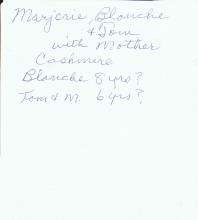 Marjorie, Blanche
& Tom
with Mother
Cashmere
Blanche 8 yrs?
Tom & M 6 yrs?